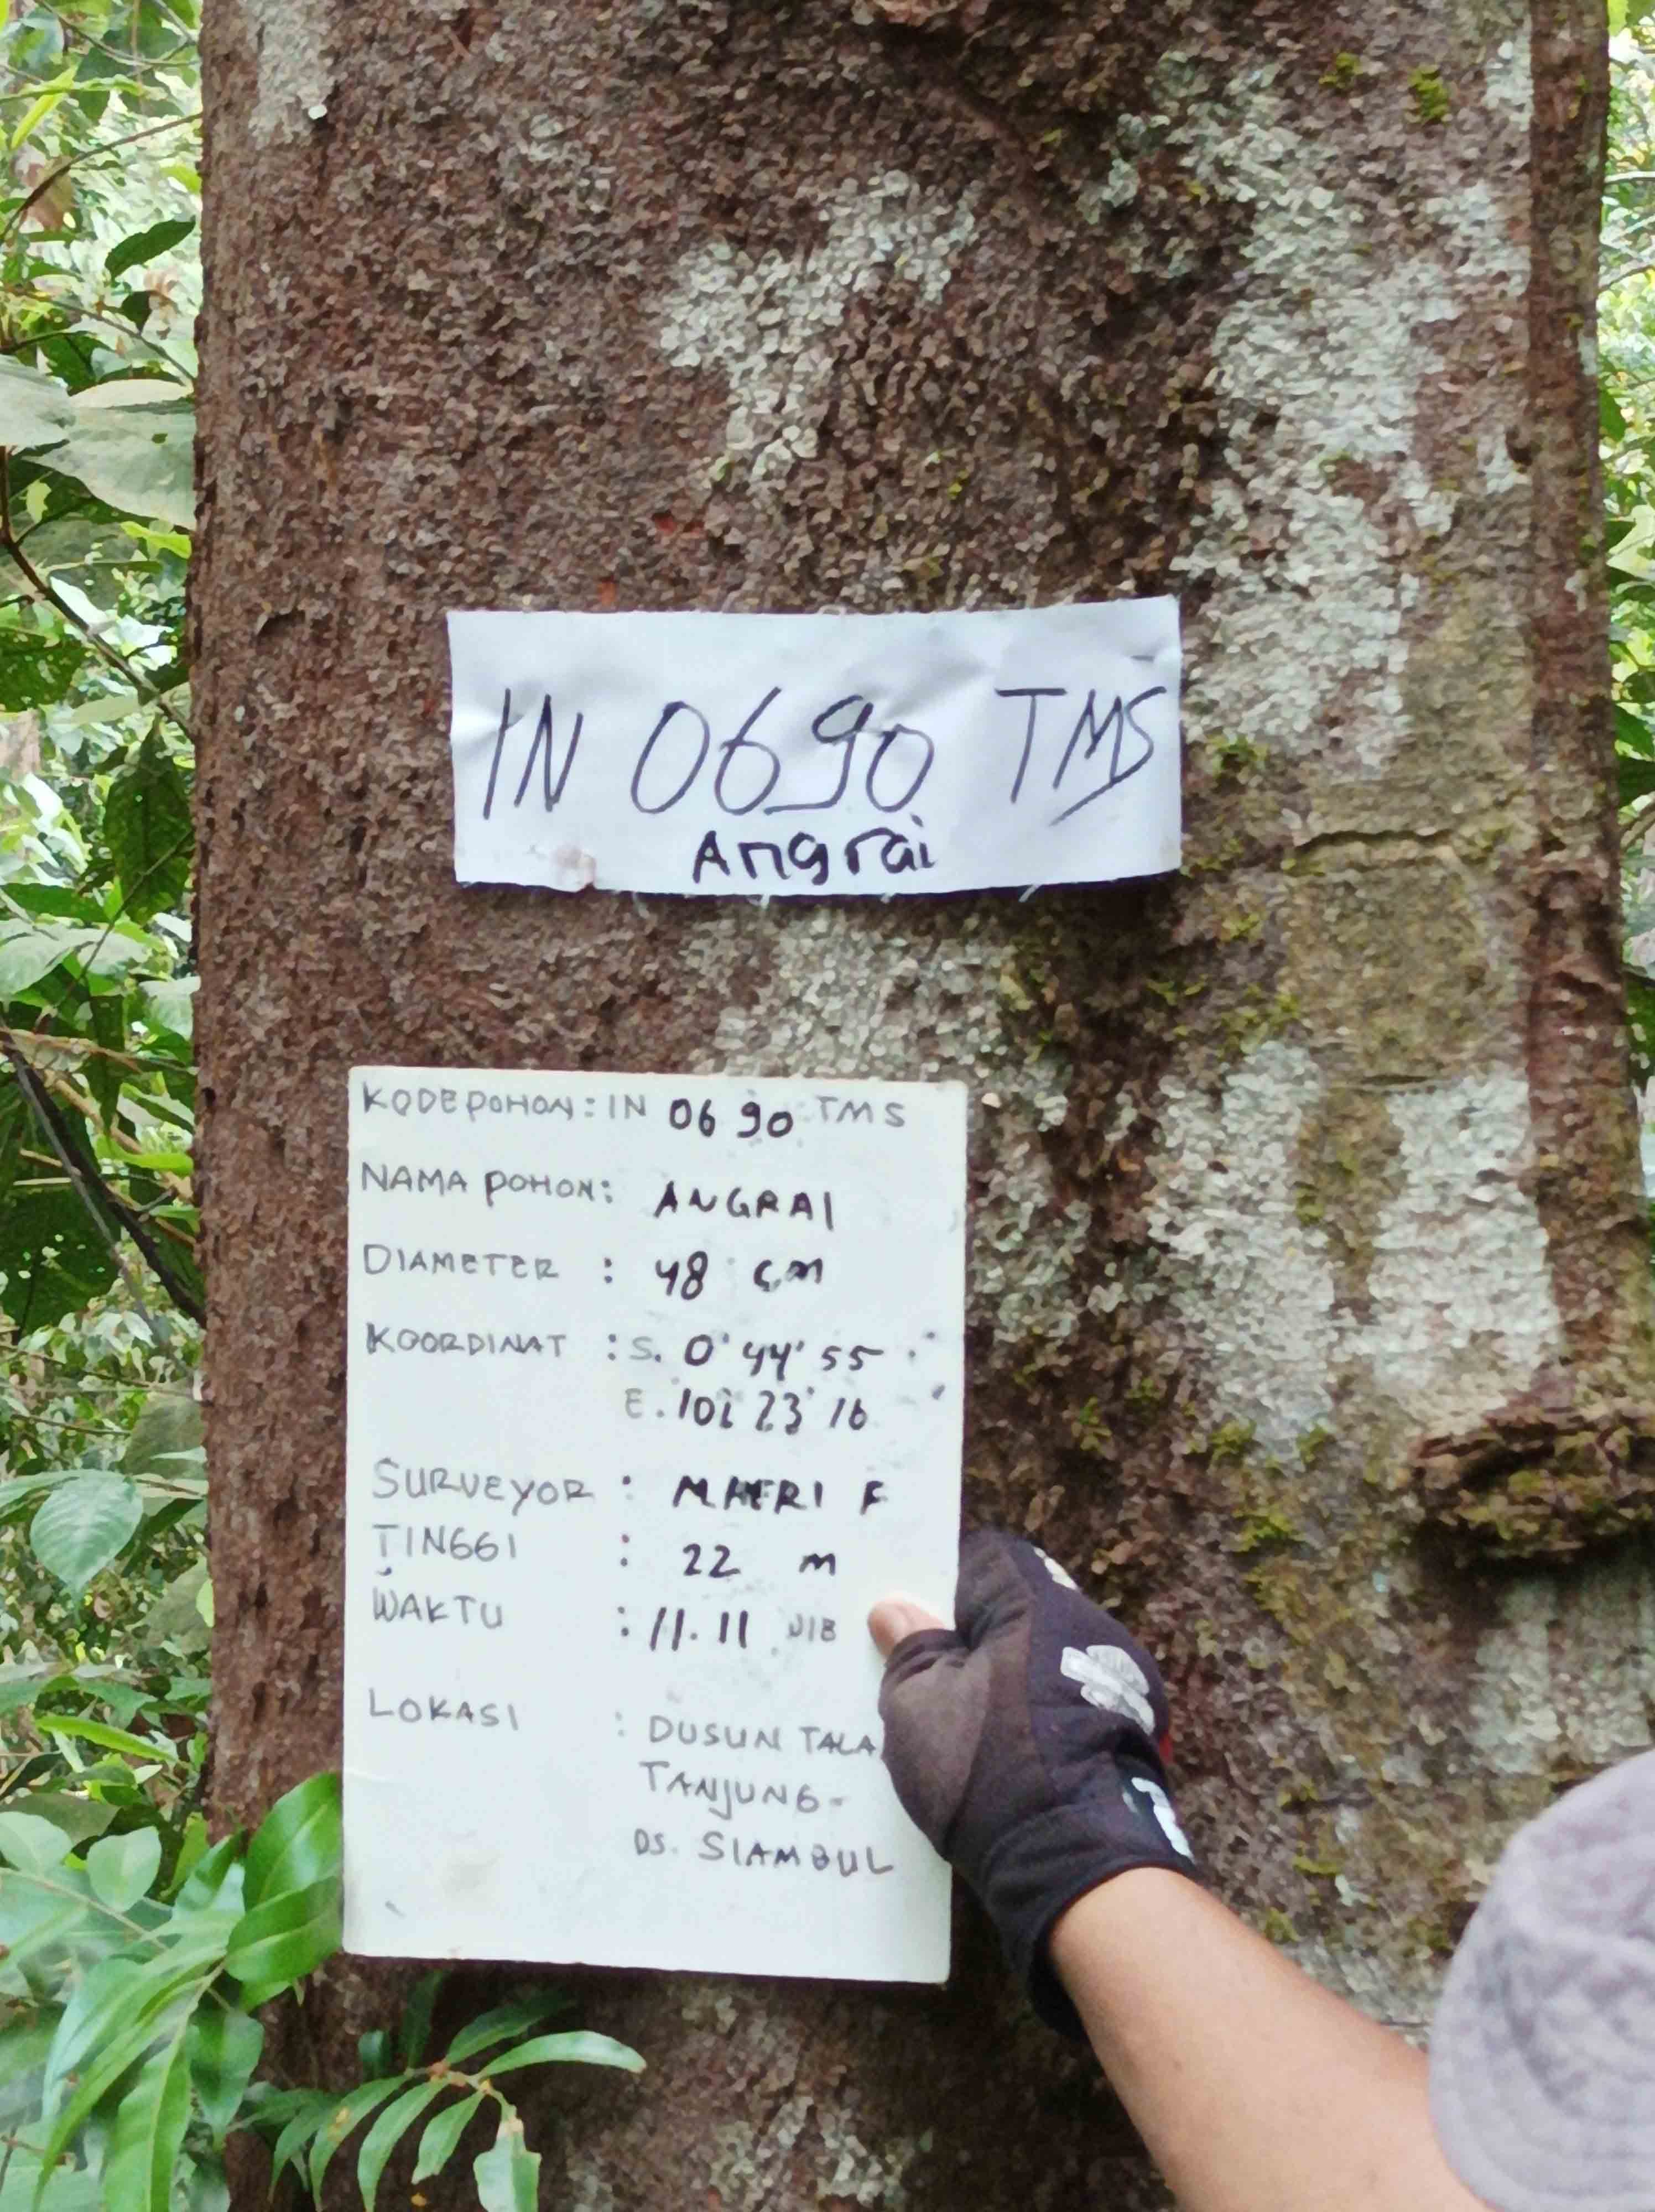 IN 0690 TMS
Angrai
KODE POHON: IN 0690 TMS
NAMA POHON: ANGRAI
DIAMETER : 48 CM
KOORDINAT : S. 0° 44' 55
E. 102° 23' 16
SURVEYOR : M.HERI F
TINGGI : 22 m
WAKTU : 11.11 WIB
LOKASI : DUSUN TALA
TANJUNG-
DS. SIAMBUL